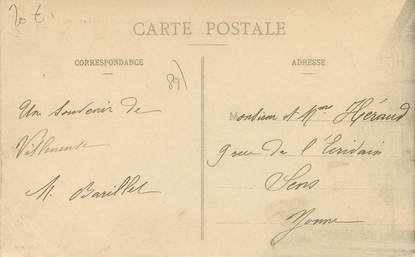 20 €
CARTE POSTALE
CORRESPONDANCE
ADRESSE
89)
Un souvenir de
M. Barillet
Monsieur et Mme Héraud
9 rue de l'Ecridain
Sens
Yonne